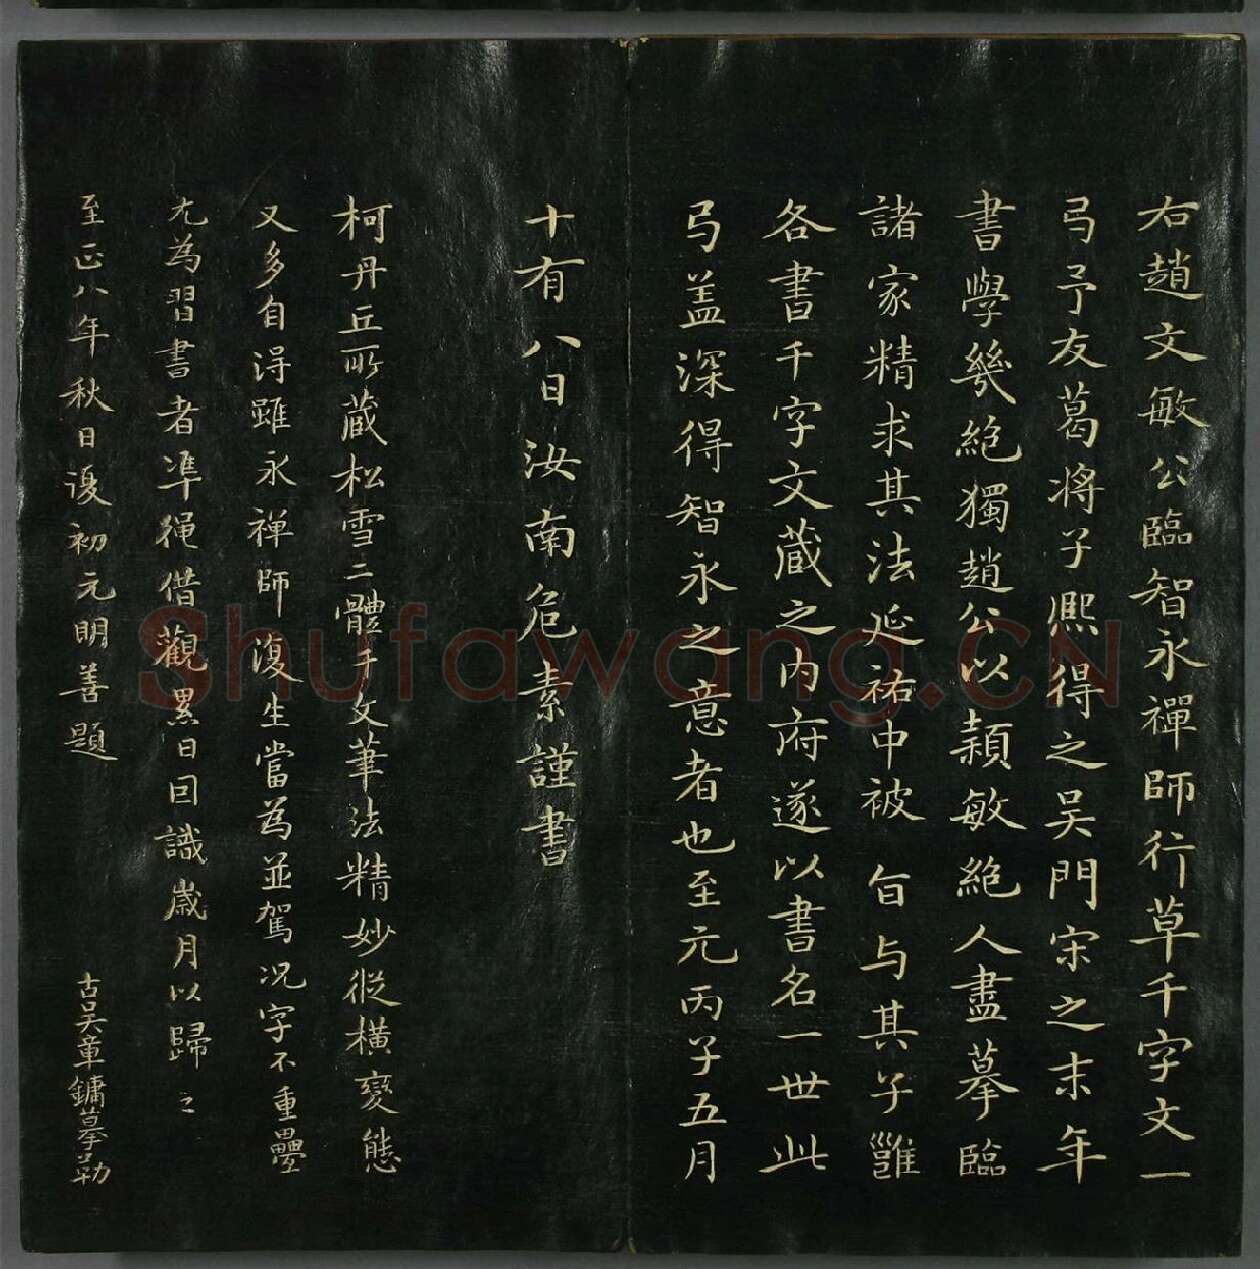 右趙文敏公臨智永禪師行草千字文一
弓予友葛將子熈得之吴門宋之末年
書學㡬絶獨趙公以頴敏絶人盡摹臨
諸家精求其法延祐中被 旨与其子雝
各書千字文蔵之内府遂以書名一世此
弓盖深得智永之意者也至元丙子五月
十有八日汝南危素謹書
柯丹丘所蔵松雪二體千文筆法精妙縱横變態
又多自淂雖永禪師復生當為並駕况字不重疊
尤為習書者凖繩借觀累日因識嵗月以歸之
至正八年秋日復初元明善題
古吴章鏞摹勒
Shufawang.CN